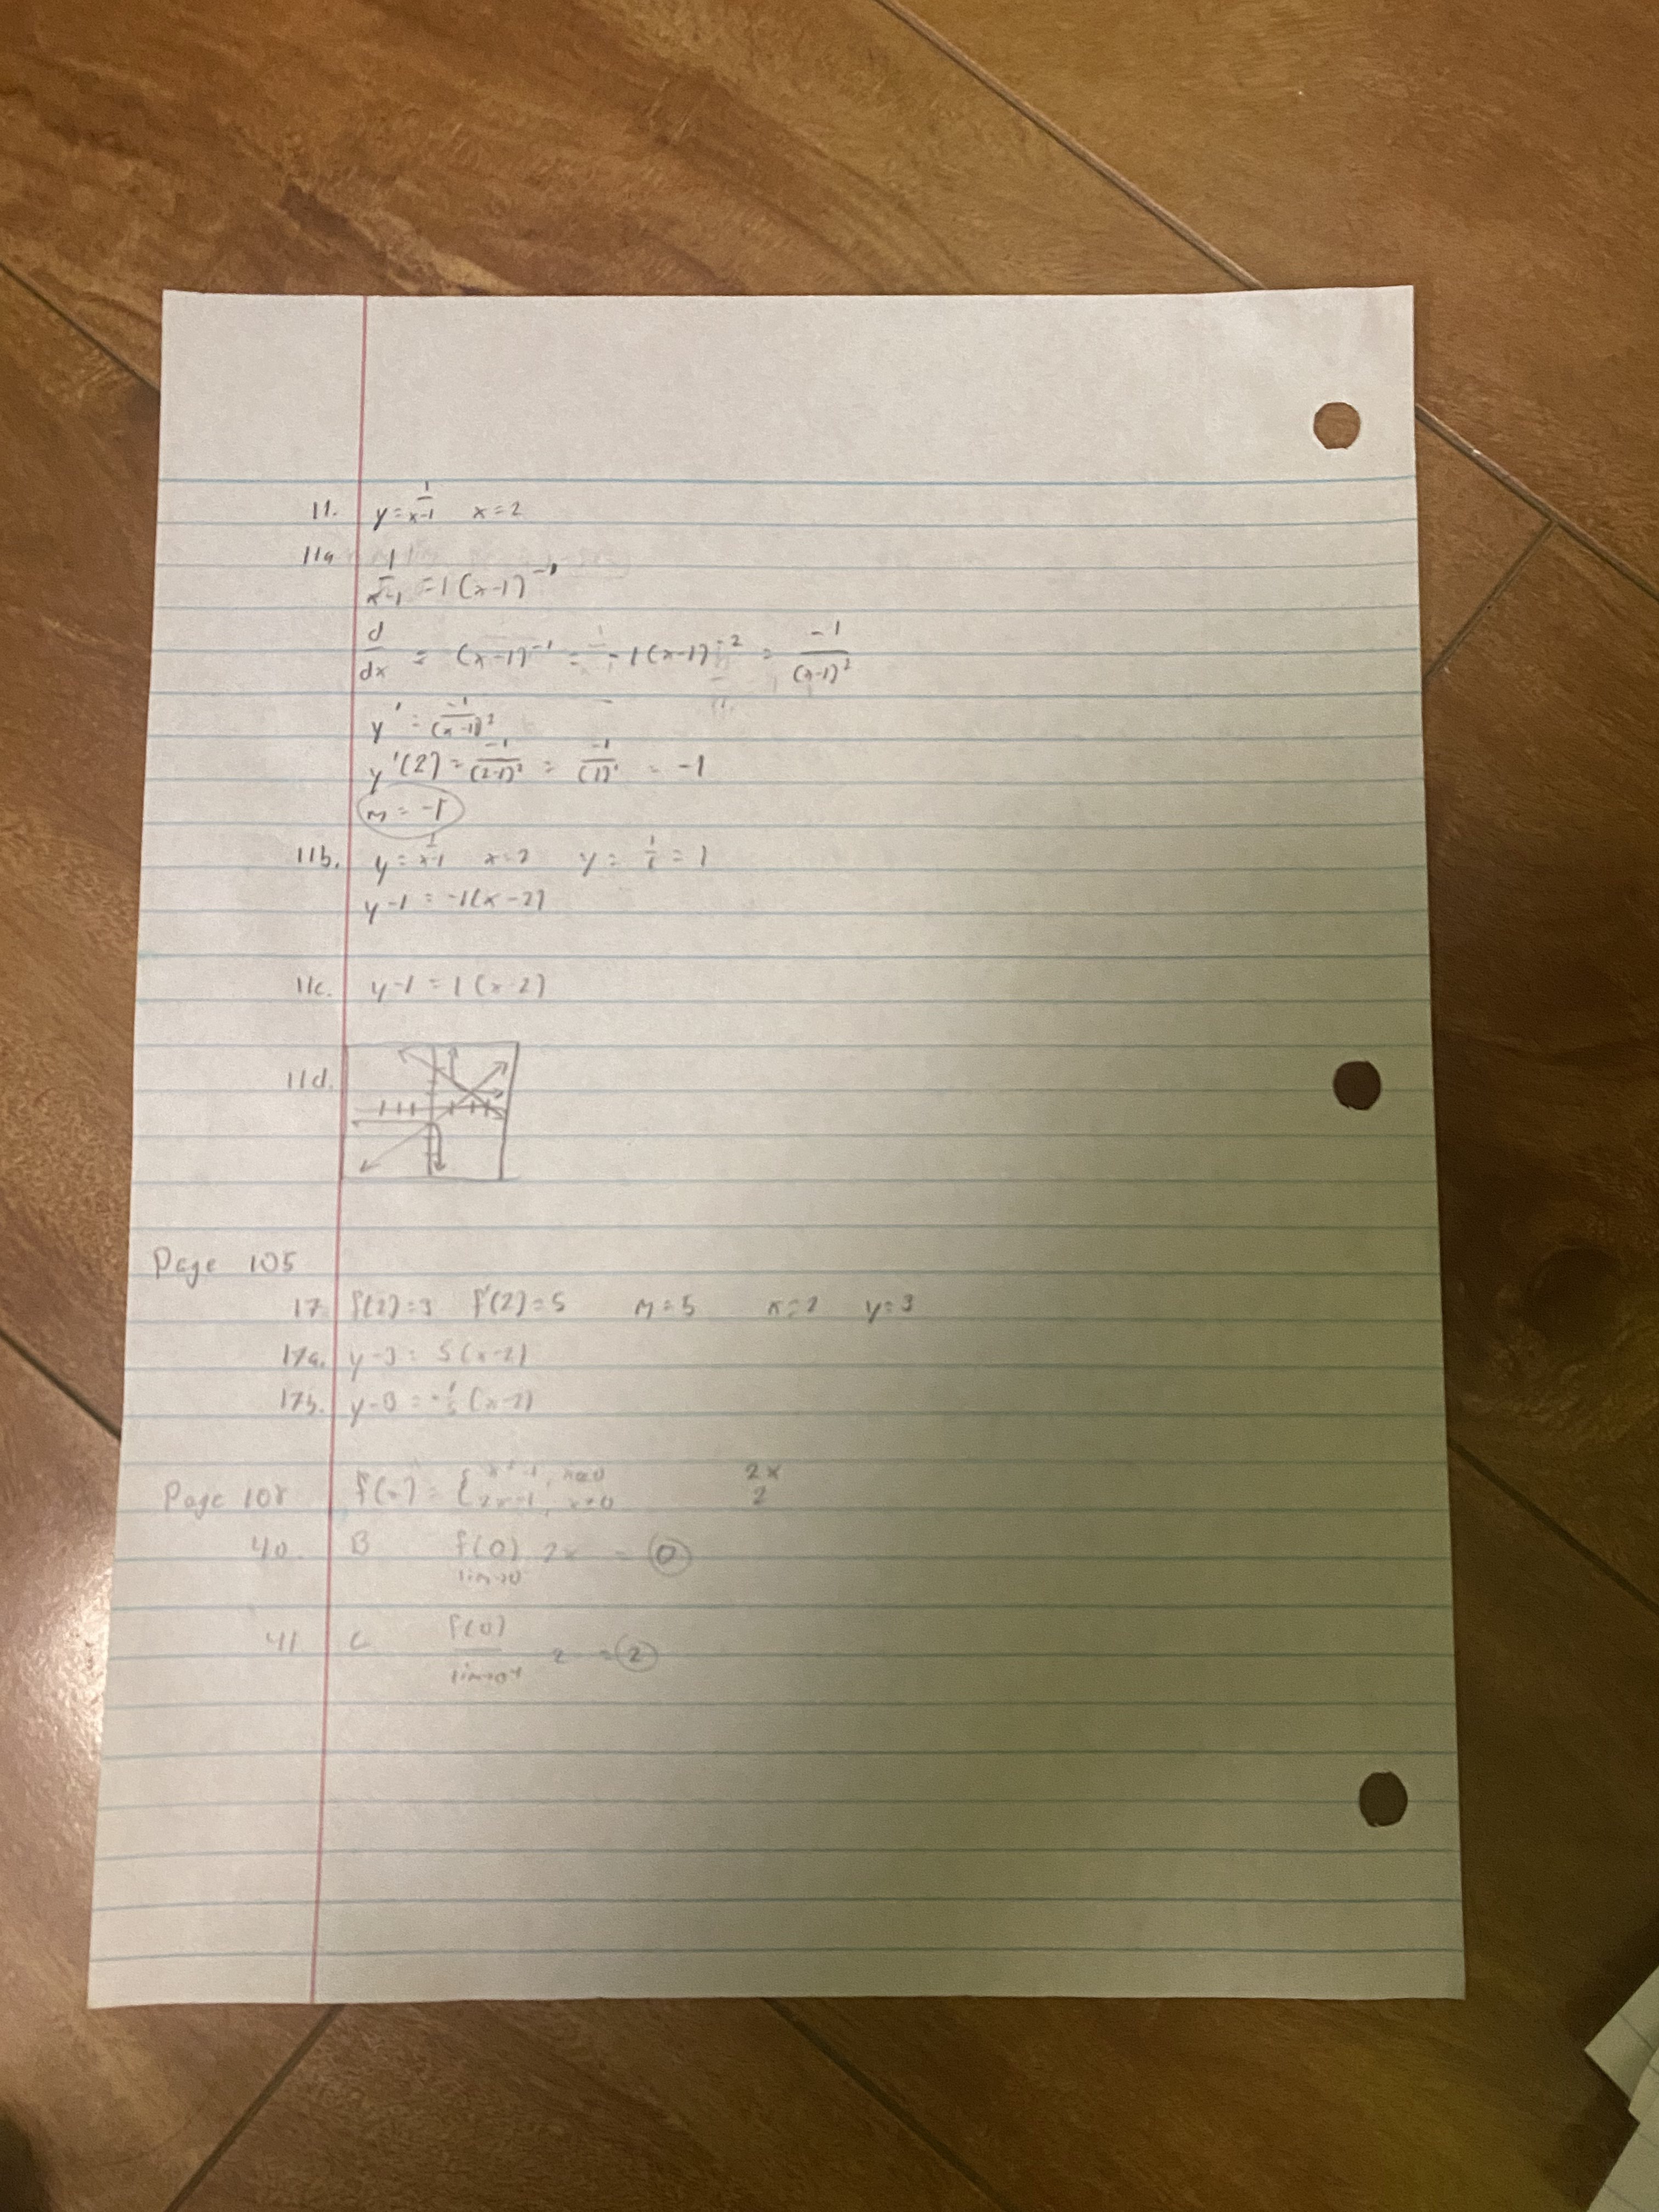 11. y = 1/(x-1) x=2
11a
1/(x-1) = 1(x-1)^-1
d/dx = (x-1)^-1 = -1(x-1)^-2 = -1/(x-1)^2
y' = -1/(x-1)^2
y'(2) = -1/(2-1)^2 = -1/(1)^1 = -1
m = -1
11b. y = 1/(x-1) x=2 y = 1/1 = 1
y-1 = -1(x-2)
11c. y-1 = 1(x-2)
11d.
Page 105
17 f(2)=3 f'(2)=5 m=5 x=2 y=3
17a. y-3 = 5(x-2)
17b. y-3 = -1/5 (x-2)
Page 108 f(x) = { 2x-1, 2x
2
40. B f(0) 2x = 0
lim→0
41 C f(0)
lim→0+ 2 = 2